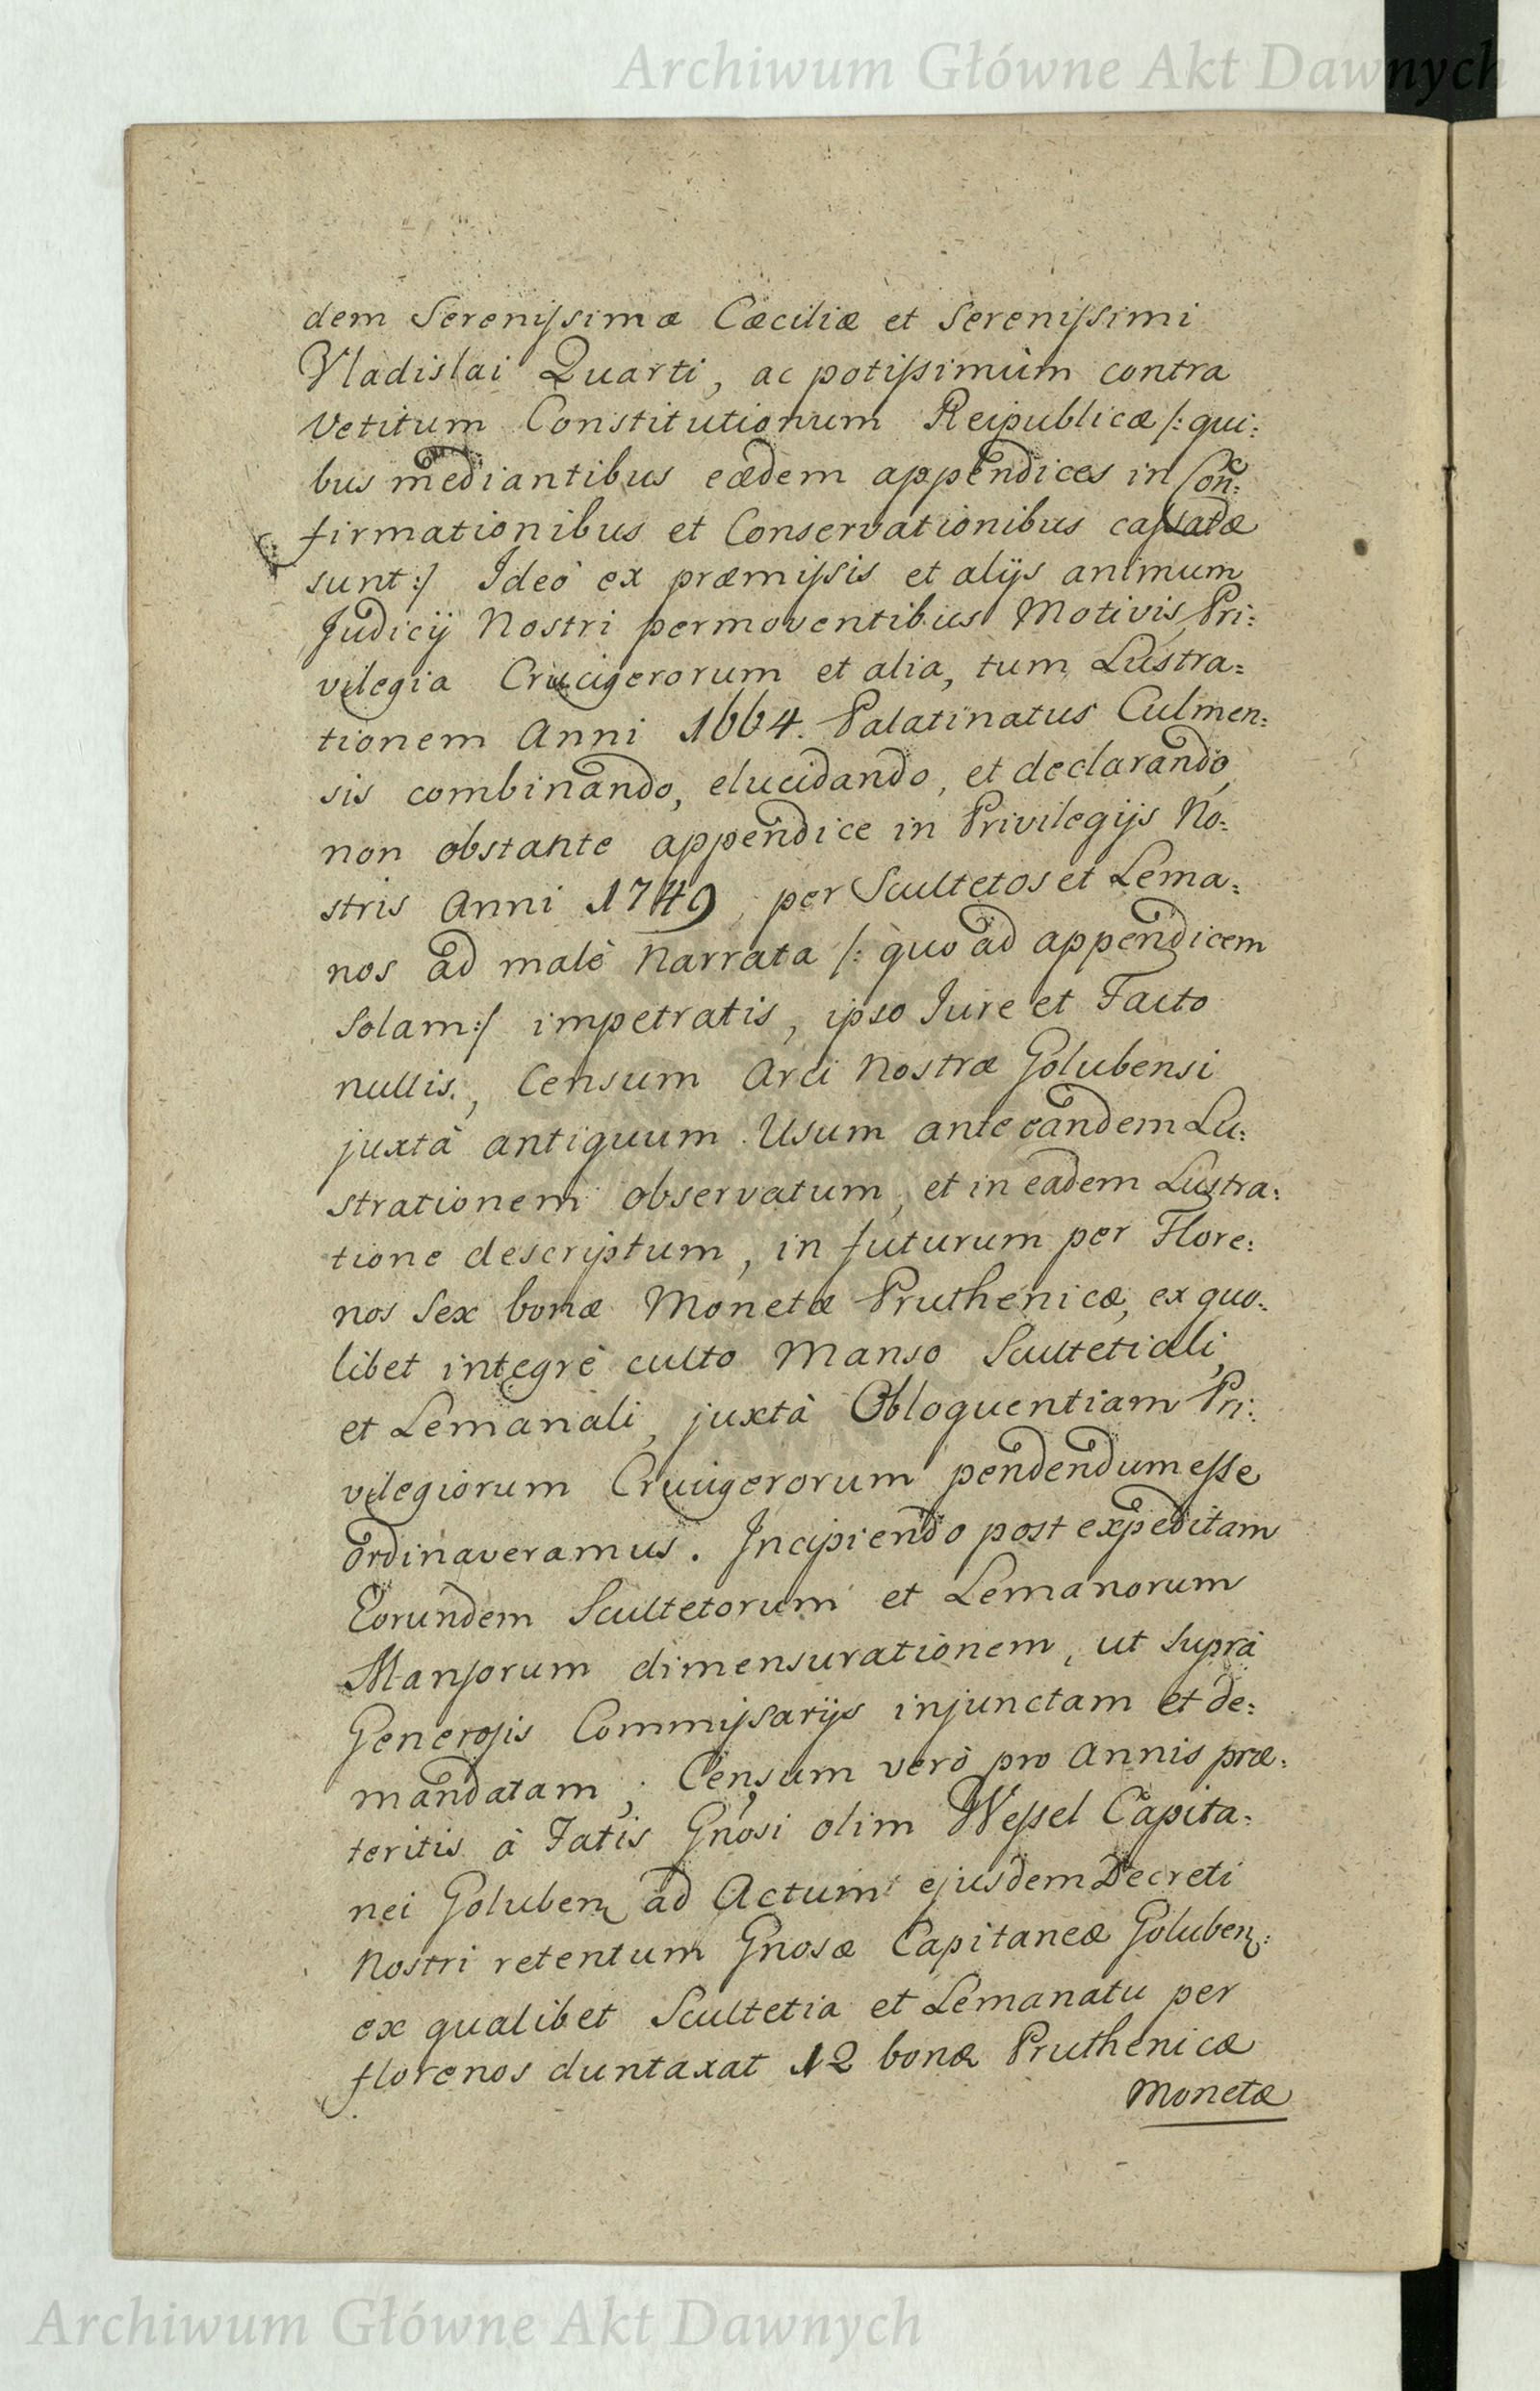 Archiwum Główne Akt Dawnych
dem Serenissimæ Cæciliæ et Serenissimi
Vladislai Quarti, ac potissimùm contra
Vetitum Constitutionum Reipublicæ /: qui:
bus mediantibus eædem appendices in Con:
firmationibus et Conservationibus cassatæ
sunt :/ Ideò ex præmissis et alijs animum
Judicij Nostri permoventibus Motivis, Pri:
vilegia Crucigerorum et alia, tum Lustra:
tionem Anni 1664. Palatinatus Culmen:
sis combinando, elucidando, et declarando,
non obstante appendice in Privilegijs No:
stris Anni 1749 per Scultetos et Lema:
nos ad malè narrata /: quo ad appendicem
Solam :/ impetratis, ipso Jure et Facto
nullis, Censum Arci Nostræ Golubensi
juxtà antiquum Usum ante eandem Lu:
strationem observatum, et in eadem Lustra:
tione descriptum, in futurum per Flore:
nos Sex bonæ Monetæ Pruthenicæ, ex quo:
libet integrè culto Manso Scultetiali,
et Lemanali, juxtà Obloquentiam Pri:
vilegiorum Crucigerorum pendendum esse
ordinaveramus. Incipiendo post expeditam
Eorundem Scultetorum et Lemanorum
Mansorum dimensurationem, ut suprà
Generosis Commissarijs injunctam et de:
mandatam; Censum verò pro Annis præ:
teritis à Fatis Gnosi olim Wessel Capita:
nei Goluben ad Actum ejusdem Decreti
Nostri retentum Gnosæ Capitaneæ Goluben:
ex qualibet Scultetia et Lemanatu per
florenos duntaxat 12 bonæ Pruthenicæ
Monetæ
Archiwum Główne Akt Dawnych